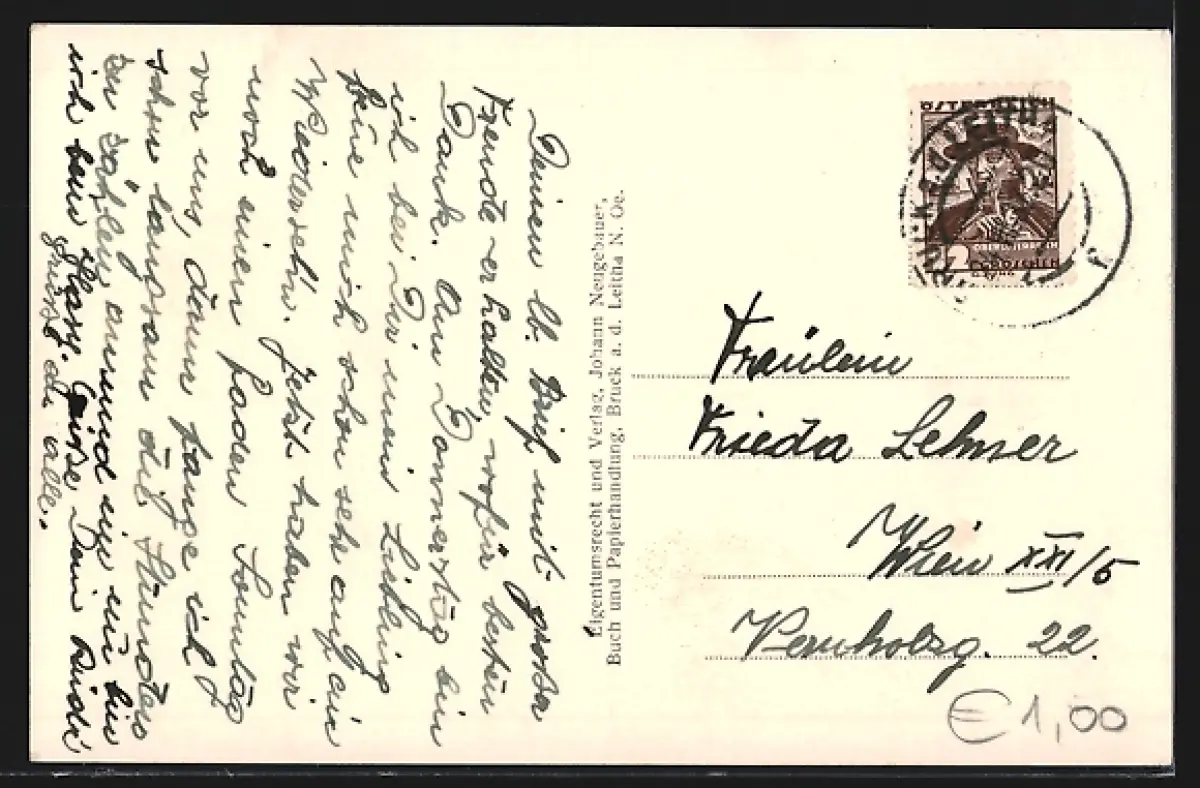 Deinen lb. Brief mit grosser
Freude erhalten, wofür besten
Dank. Am Donnerstag bin
ich bei Dir mein Liebling
freue mich schon sehr auf ein
Wiedersehn. Jetzt haben wir
noch einen Sonntag
vor uns, dann fange ich
schon langsam die Stunden
zu zählen an und
ich beim Hasy. Grüsse Dein Rudi
Grüsse an alle.
Eigentumsrecht und Verlag, Johann Neugebauer,
Buch und Papierhandlung, Bruck a. d. Leitha N. Oe.
ÖSTERREICH
OBERÖSTERREICH
GROSCHEN
Fräulein
Frieda Lehner
Wien XXI/5
22.
€ 1,00